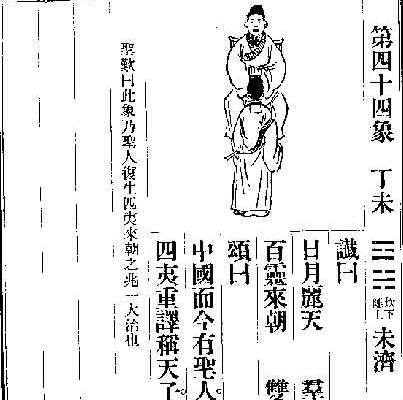 第四十四象 丁未 ䷿ 坎下離上 未濟
讖曰
日月麗天 羣
百靈來朝 雙
頌曰
中國而今有聖人。
四夷重譯稱天子。
聖歎曰此象乃聖人復生四夷來朝之兆一大治也